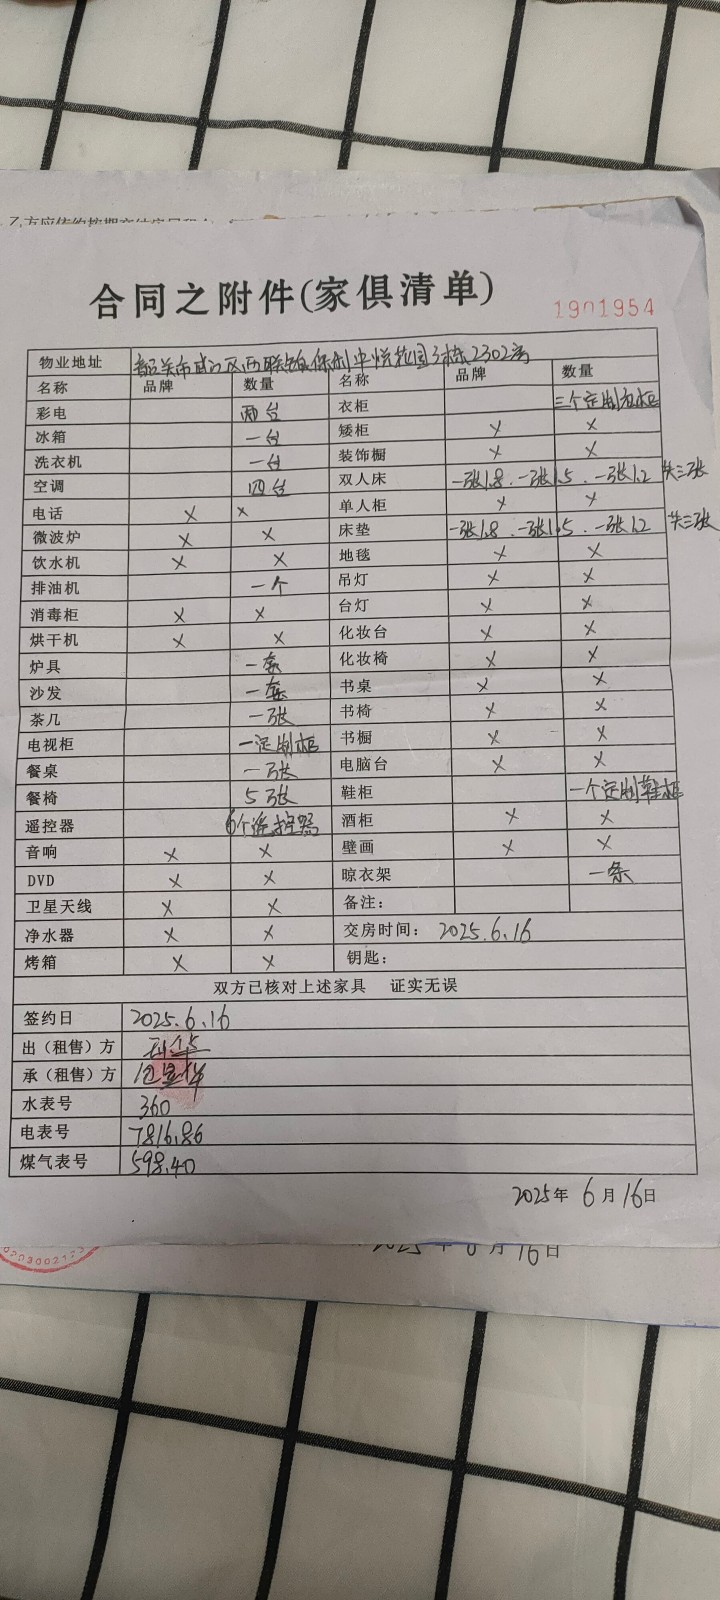 乙方应依约按期交纳房屋租金
合同之附件(家俱清单)
1901954
物业地址 韶关市武江区西联镇保利中悦花园3栋2302房
名称 品牌 数量 名称 品牌 数量
彩电 两台 衣柜 三个定制衣柜
冰箱 一台 矮柜 × ×
洗衣机 一台 装饰橱 × ×
空调 四台 双人床 一张1.8、一张1.5、一张1.2 共三张
电话 × × 单人柜 × ×
微波炉 × × 床垫 一张1.8、一张1.5、一张1.2 共三张
饮水机 × × 地毯 × ×
排油机 一个 吊灯 × ×
消毒柜 × × 台灯 × ×
烘干机 × × 化妆台 × ×
炉具 一套 化妆椅 × ×
沙发 一套 书桌 × ×
茶几 一张 书椅 × ×
电视柜 一定制柜 书橱 × ×
餐桌 一张 电脑台 × ×
餐椅 5张 鞋柜 一个定制鞋柜
遥控器 6个遥控器 酒柜 × ×
音响 × × 壁画 × ×
DVD × × 晾衣架 一条
卫星天线 × × 备注：
净水器 × × 交房时间： 2025.6.16
烤箱 × × 钥匙：
双方已核对上述家具 证实无误
签约日 2025.6.16
出（租售）方
承（租售）方
水表号 360
电表号 7816.86
煤气表号 598.40
2025年6月16日
2025年6月16日